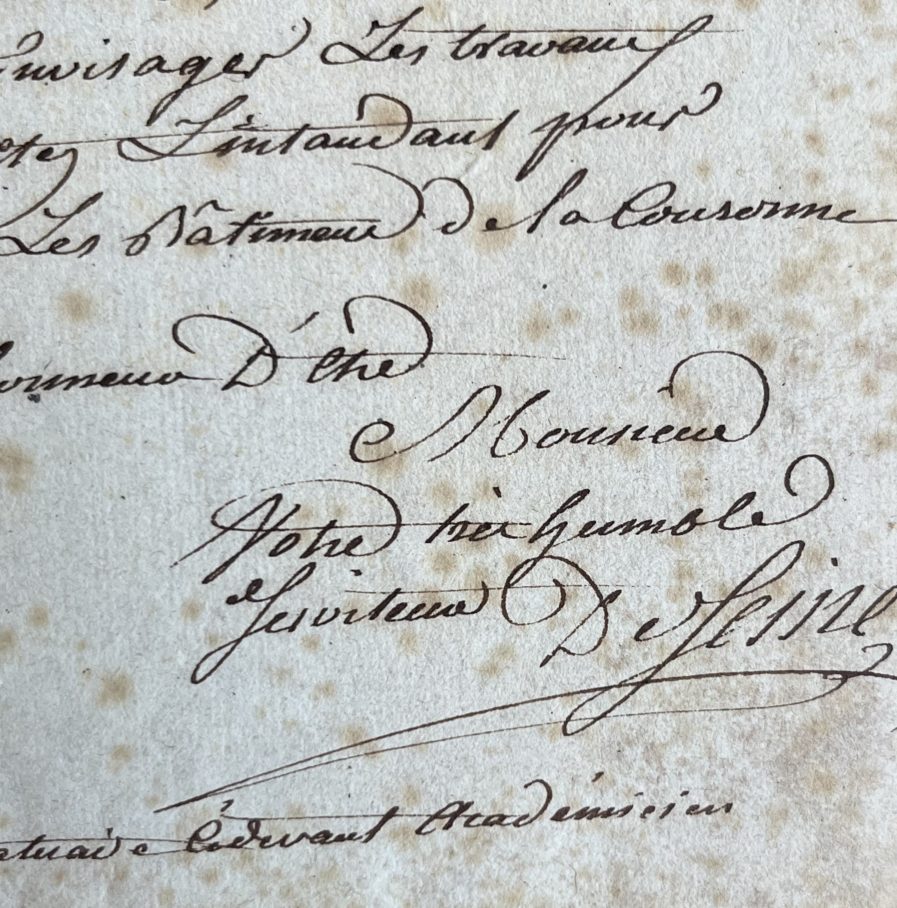 Envisager Les travaux
ete L'intandant pour
Les Bâtimens de la Couronne
honneur D'être
Monsieur
Votre très humble
Serviteur DeSeine
statuaire Cidevant Académicien